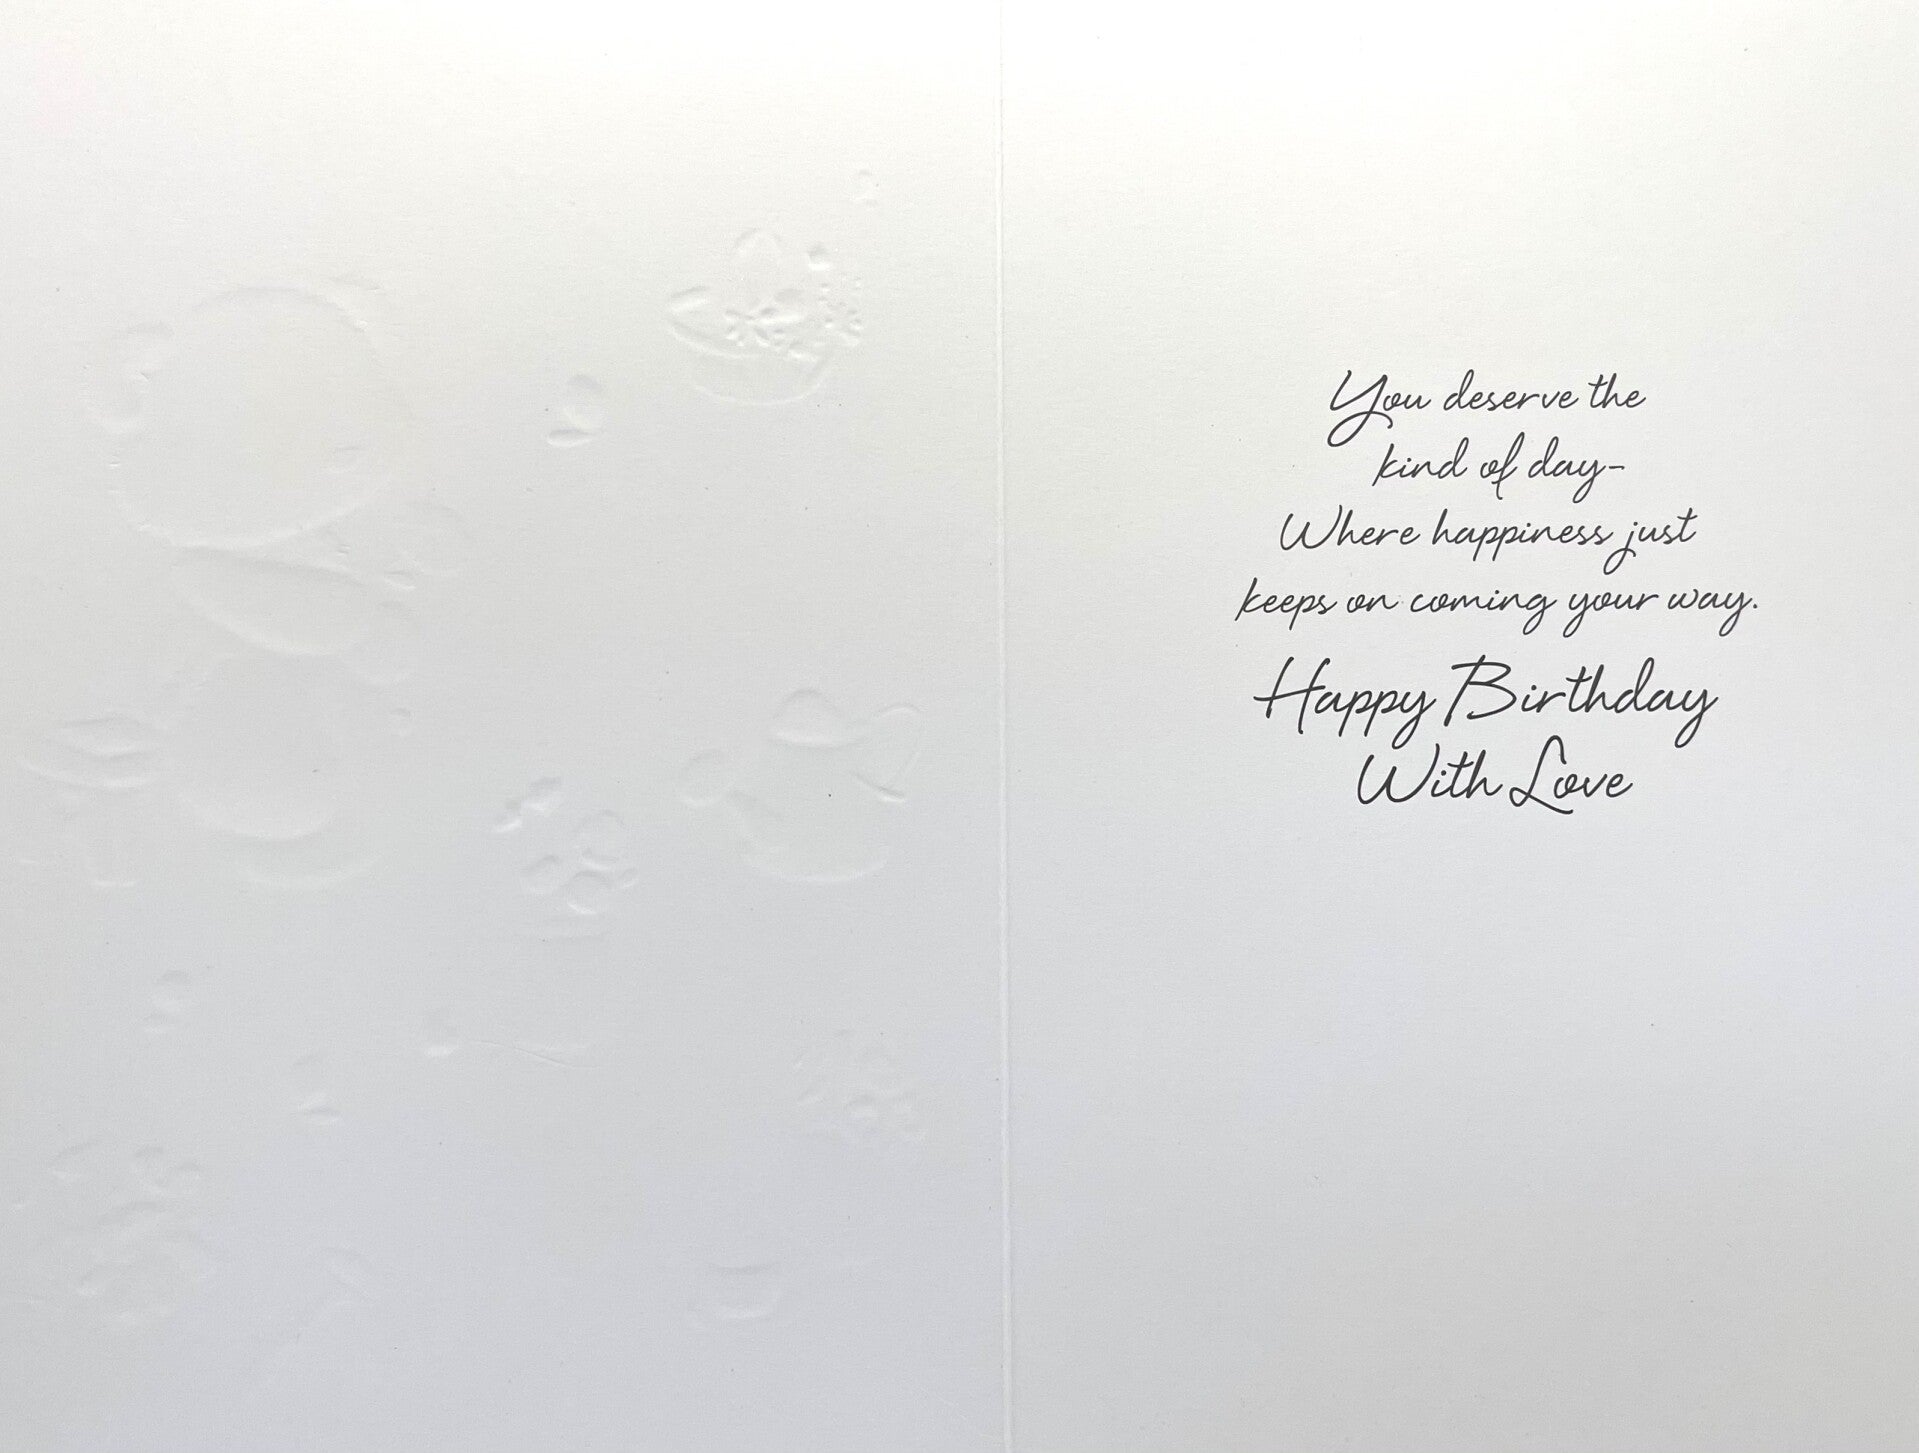 You deserve the
kind of day-
Where happiness just
keeps on coming your way.
Happy Birthday
With Love